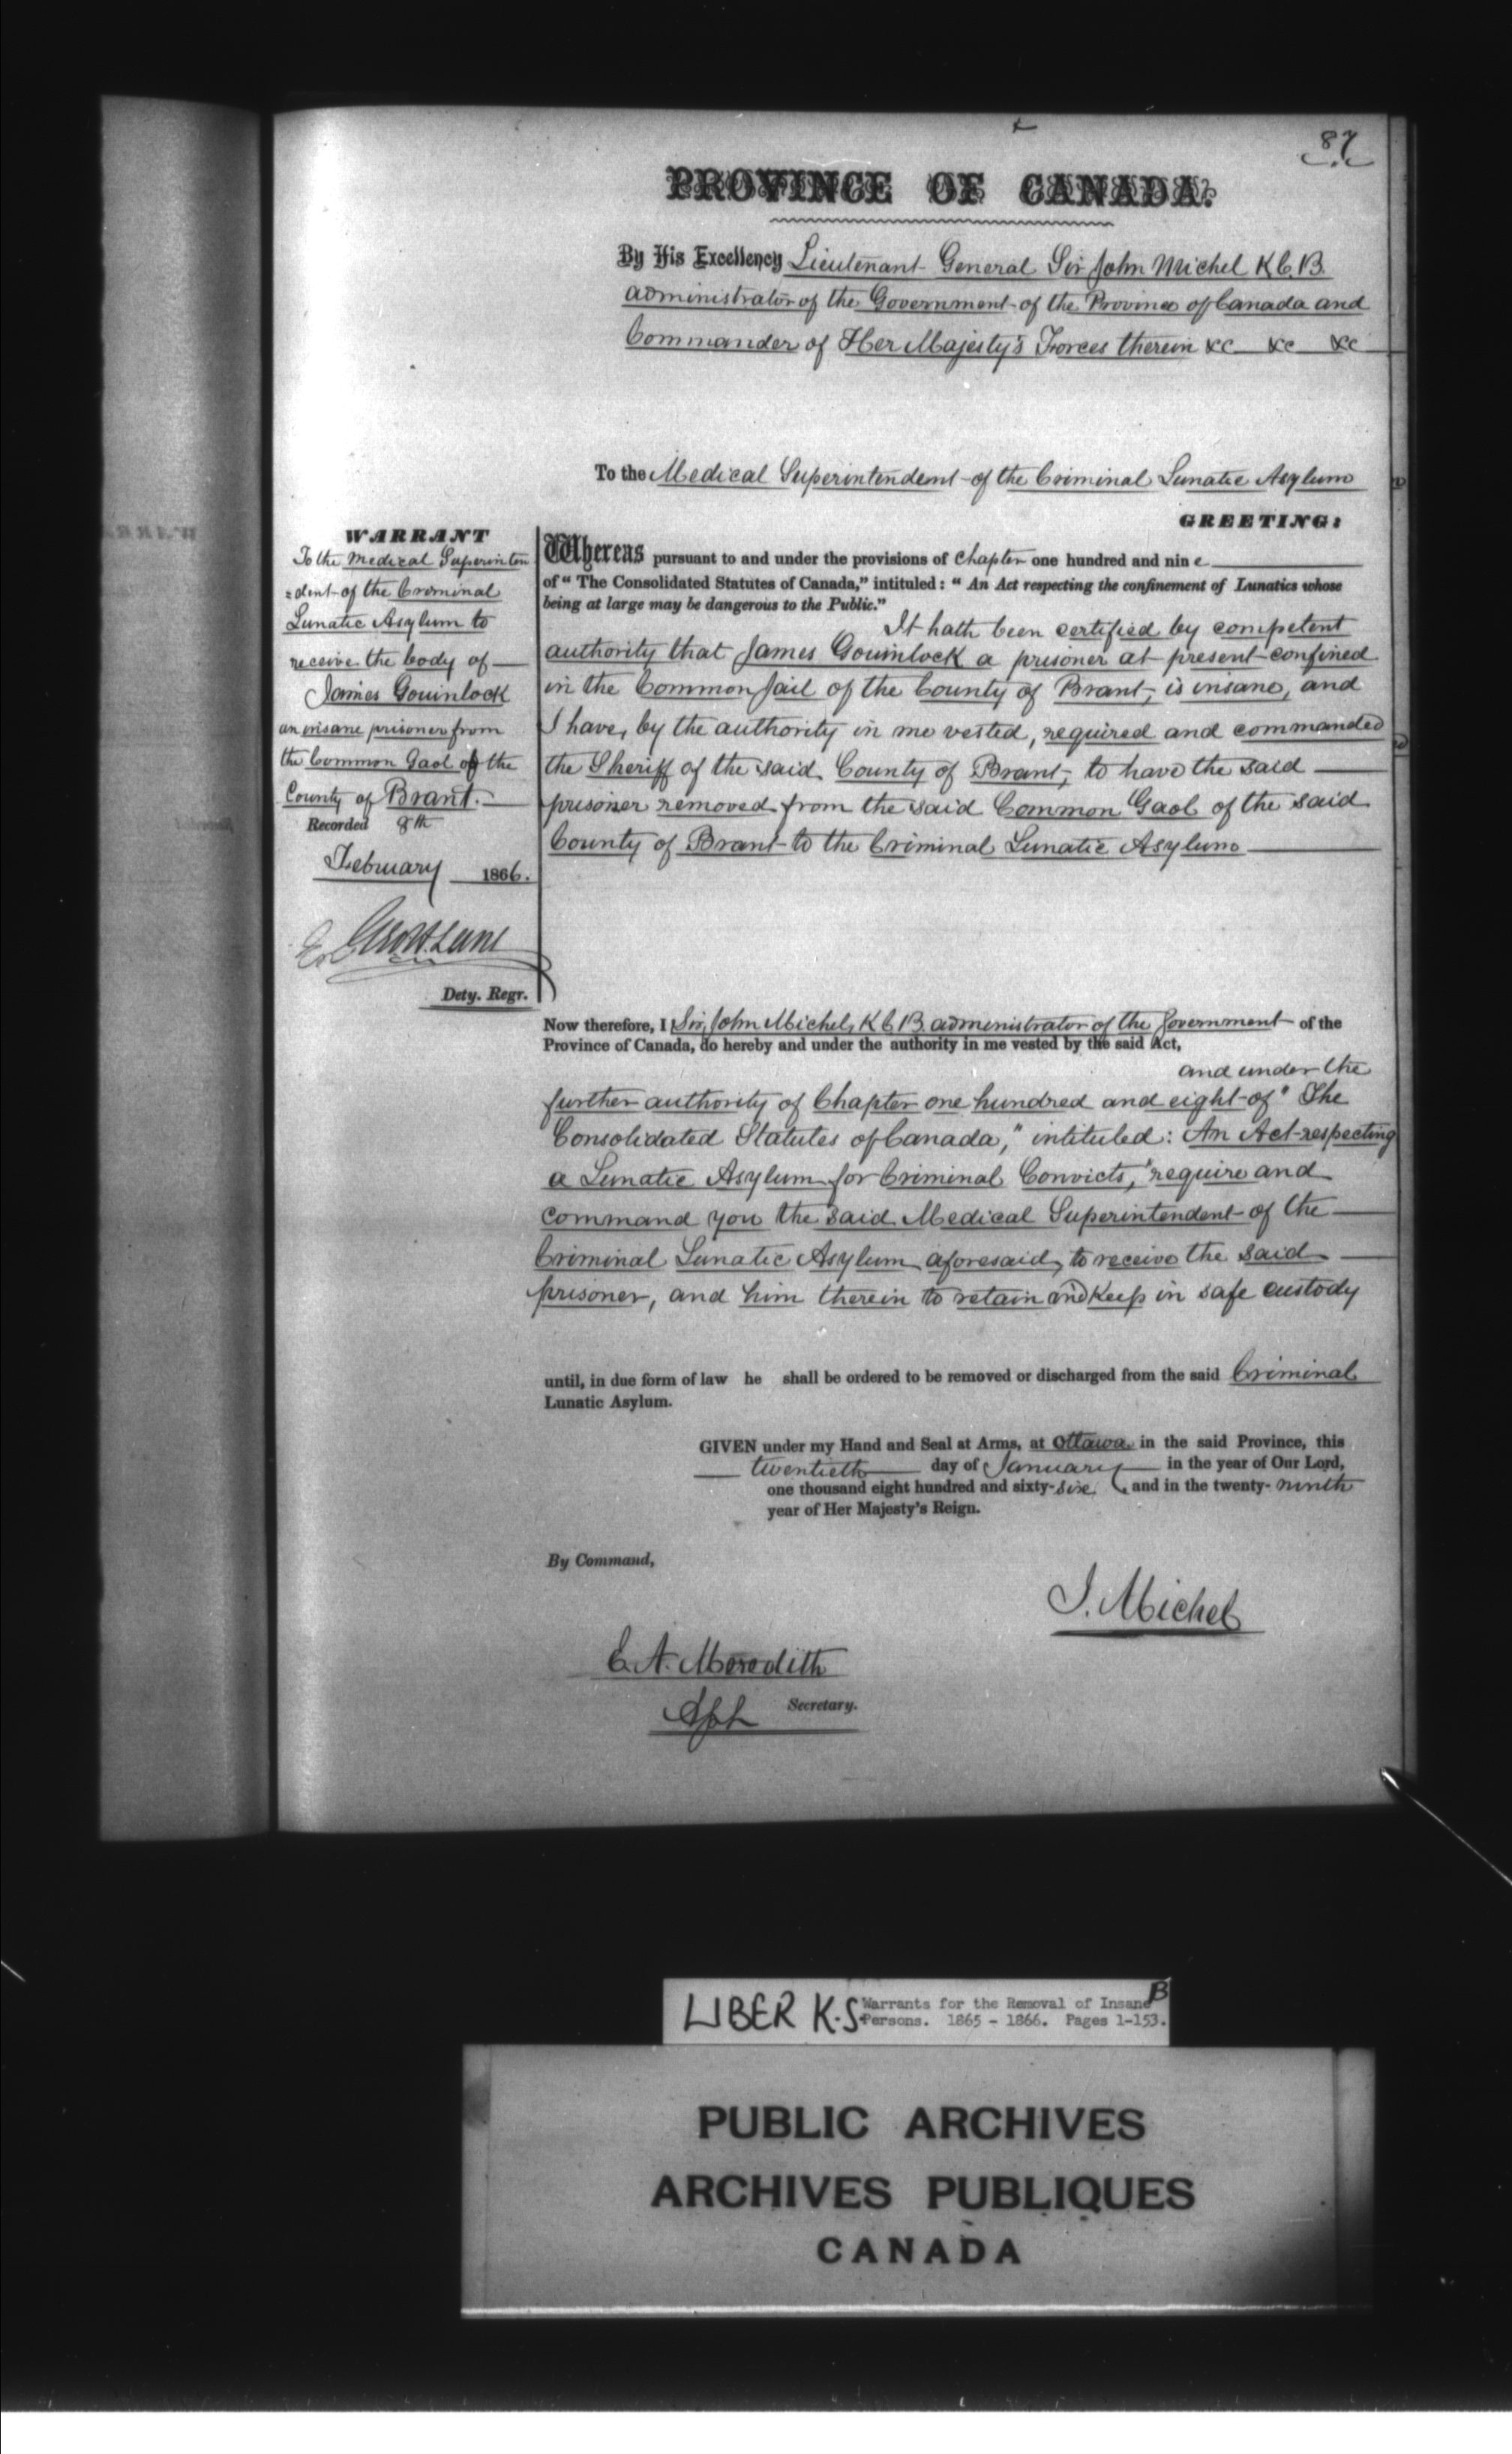 87
PROVINCE OF CANADA.
By His Excellency Lieutenant General Sir John Michel K.C.B.
administrator of the Government of the Province of Canada and
Commander of Her Majesty's Forces therein &c &c &c
To the Medical Superintendent of the Criminal Lunatic Asylum
GREETING:
WARRANT
To the Medical Superinten
=dent of the Criminal
Lunatic Asylum to
receive the body of
James Gouinlock
an insane prisoner from
the Common Gaol of the
County of Brant.
Recorded 8th
February 1866.
Dety. Regr.
Whereas pursuant to and under the provisions of Chapter one hundred and nine
of “ The Consolidated Statutes of Canada,” intituled : “ An Act respecting the confinement of Lunatics whose
being at large may be dangerous to the Public.”
It hath been certified by competent
authority that James Gouinlock a prisoner at present confined
in the Common Jail of the County of Brant, is insane, and
I have, by the authority in me vested, required and commanded
the Sheriff of the said County of Brant, to have the said
prisoner removed from the said Common Gaol of the said
County of Brant to the Criminal Lunatic Asylum
Now therefore, I Sir John Michel, K.C.B. administrator of the Government of the
Province of Canada, do hereby and under the authority in me vested by the said Act,
and under the
further authority of Chapter one hundred and eight of "The
Consolidated Statutes of Canada," intituled: An Act respecting
a Lunatic Asylum for Criminal Convicts," require and
command you the said Medical Superintendent of the
Criminal Lunatic Asylum aforesaid, to receive the said
prisoner, and him therein to retain and keep in safe custody
until, in due form of law he shall be ordered to be removed or discharged from the said Criminal
Lunatic Asylum.
GIVEN under my Hand and Seal at Arms, at Ottawa in the said Province, this
twentieth day of January in the year of Our Lord,
one thousand eight hundred and sixty-six and in the twenty-ninth
year of Her Majesty's Reign.
By Command,
J. Michel
E. A. Meredith
Secretary.
LIBER K.S. Warrants for the Removal of Insane B
Persons. 1865 - 1866. Pages 1-153.
PUBLIC ARCHIVES
ARCHIVES PUBLIQUES
CANADA